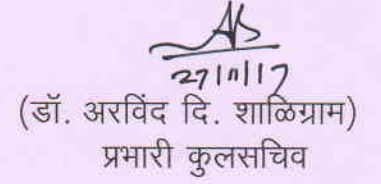 27/11/17
(डॉ. अरविंद दि. शाळिग्राम)
प्रभारी कुलसचिव